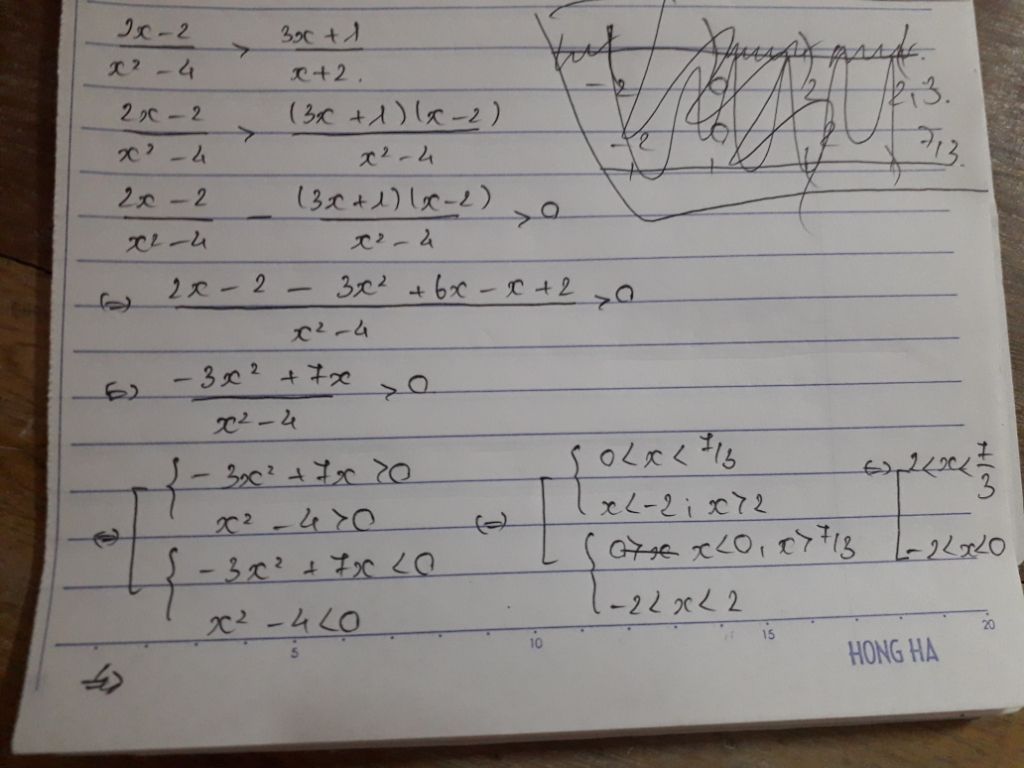 2x - 2 / x² - 4 > 3x + 1 / x + 2.
2x - 2 / x² - 4 > (3x + 1)(x - 2) / x² - 4
2x - 2 / x² - 4 - (3x + 1)(x - 2) / x² - 4 > 0
(=) 2x - 2 - 3x² + 6x - x + 2 / x² - 4 > 0
(=) -3x² + 7x / x² - 4 > 0
⇔ [ { -3x² + 7x > 0
x² - 4 > 0
{ -3x² + 7x < 0
x² - 4 < 0
(=) [ { 0 < x < 7/3
x < -2 ; x > 2
{ x < 0, x > 7/3
-2 < x < 2
⇔ [ 2 < x < 7/3
-2 < x < 0
⇔
-2 0 2 2,3.
-2 0 2 7/3.
5 10 15 20
HONG HA